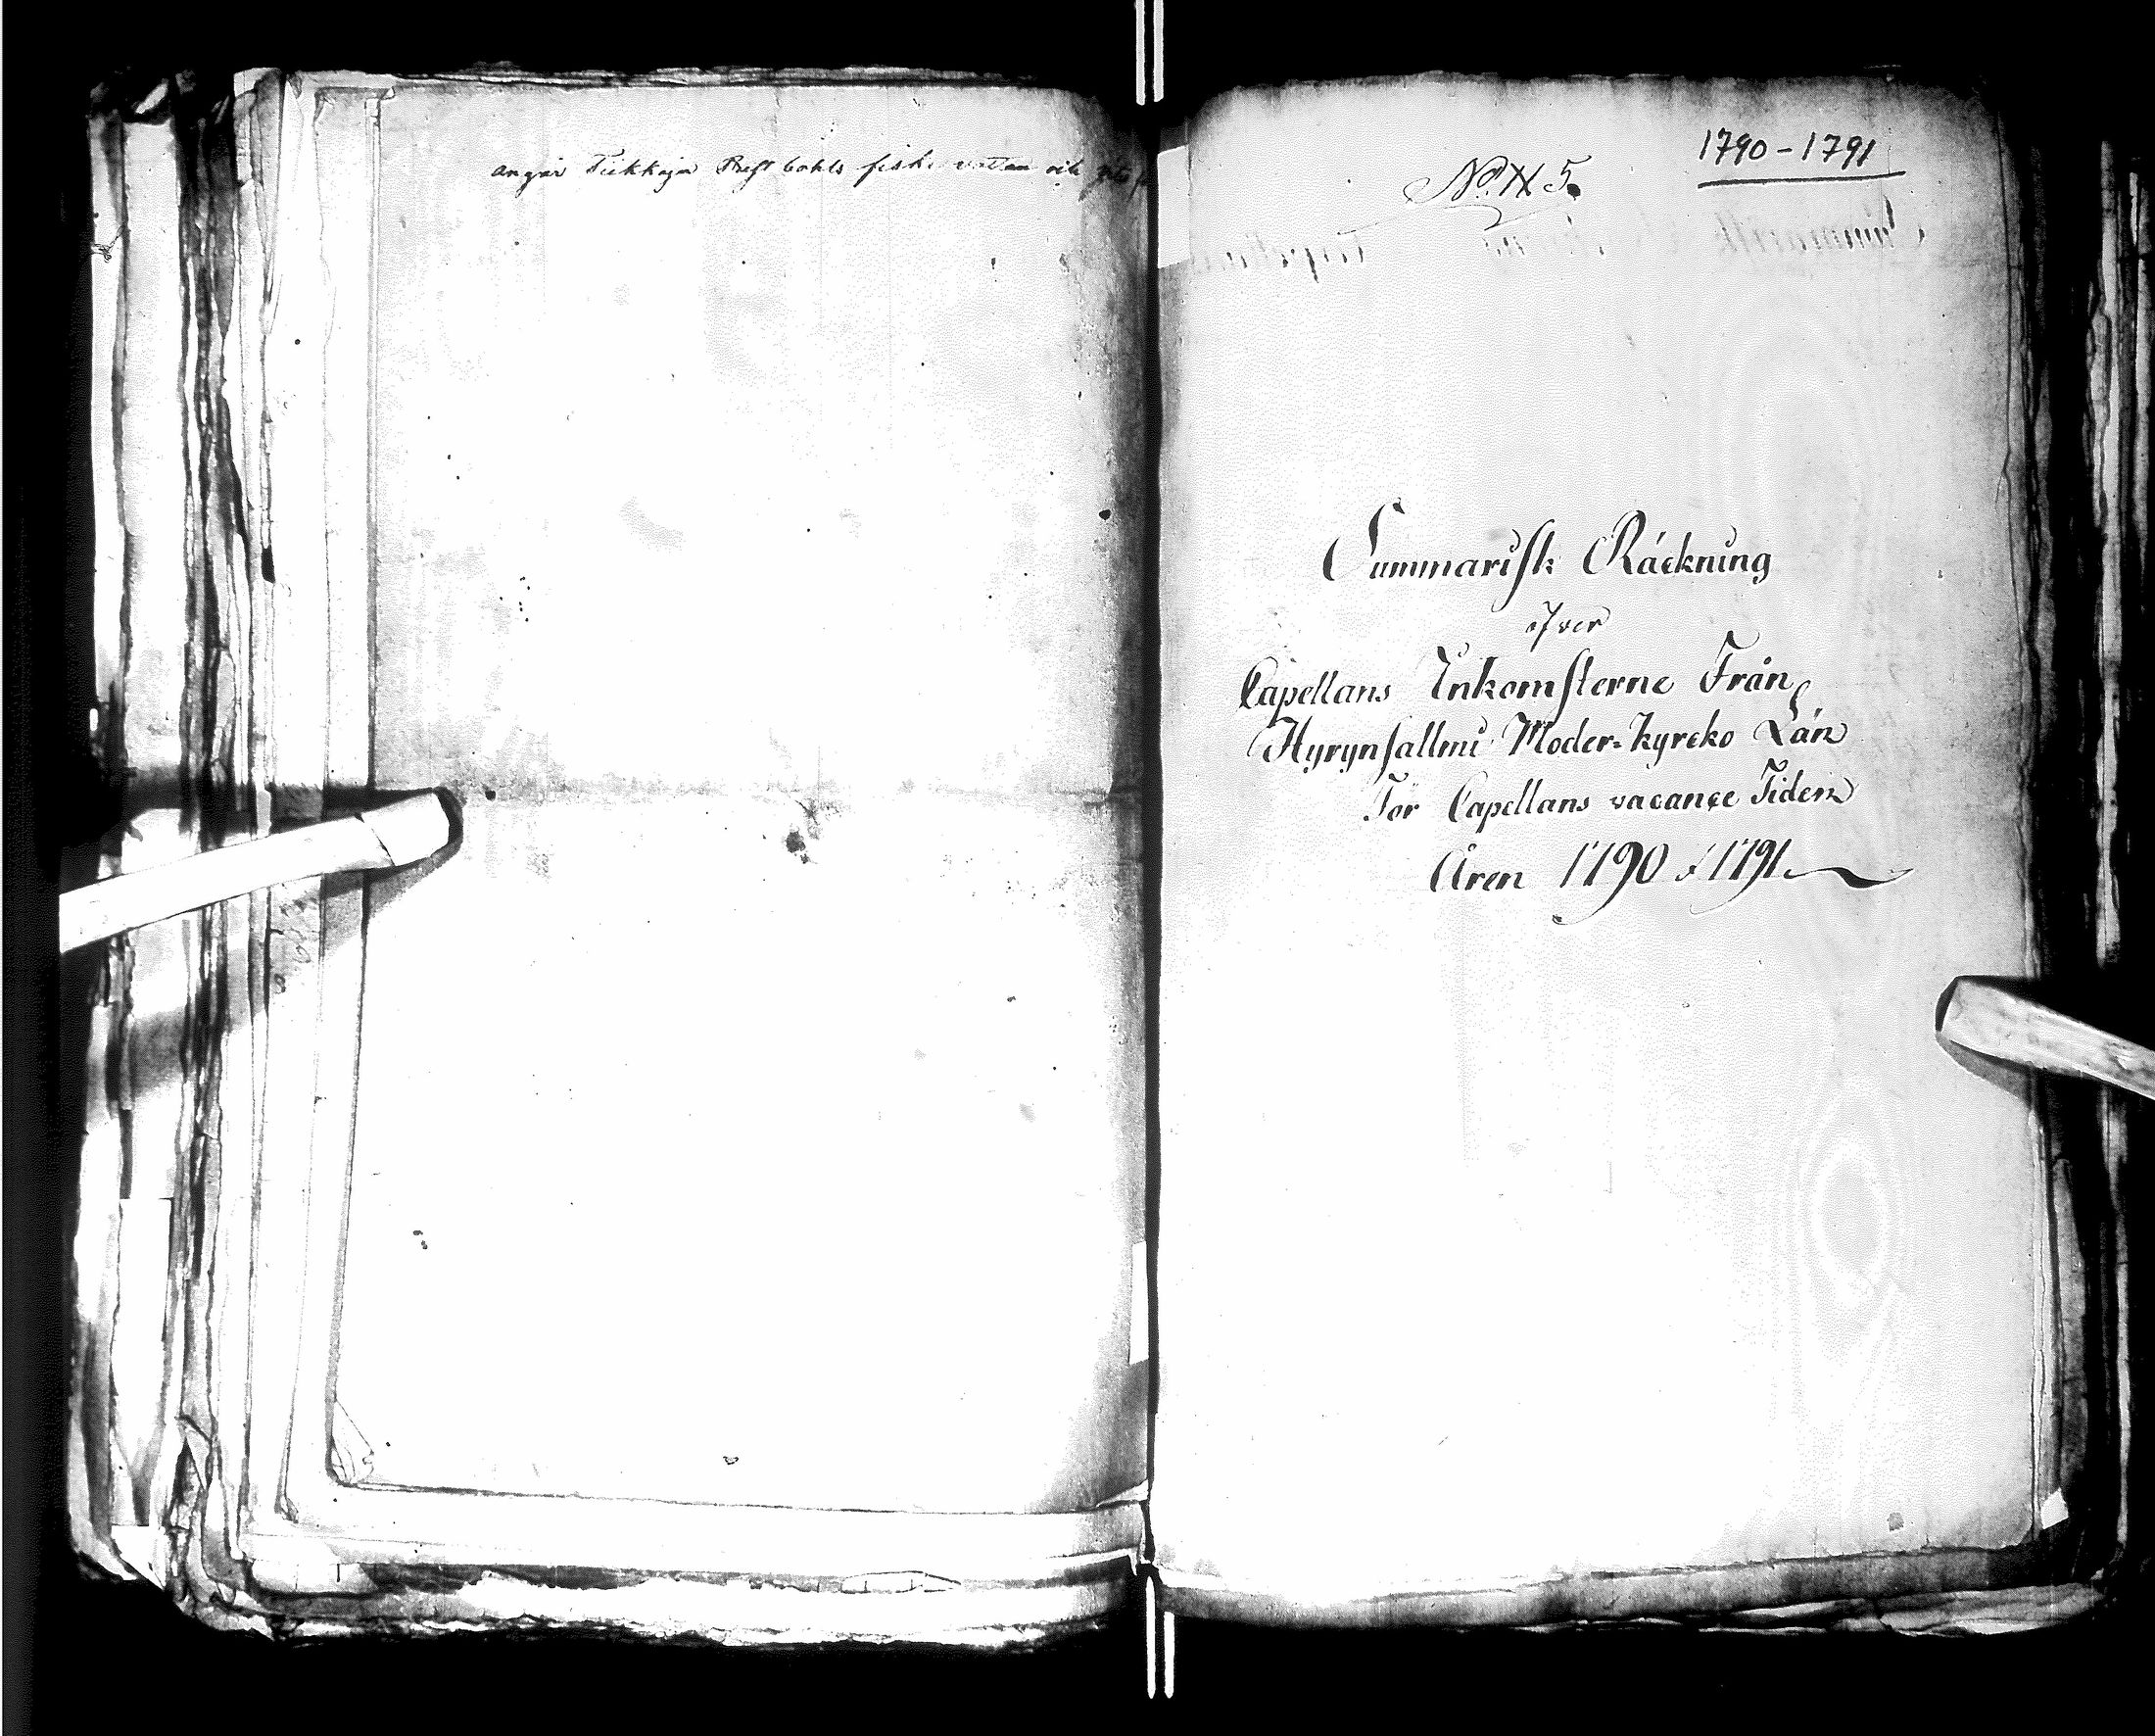 angår Tiikkaja Prest bohls fiske vatten och
1790-1791
No. 5.
Summarisk Räckning
öfver
Capellans Inkomsterne Från
Hyrynsallmi Moder-kyrcko Län
För Capellans vacance Tiden
Åren 1790 & 1791